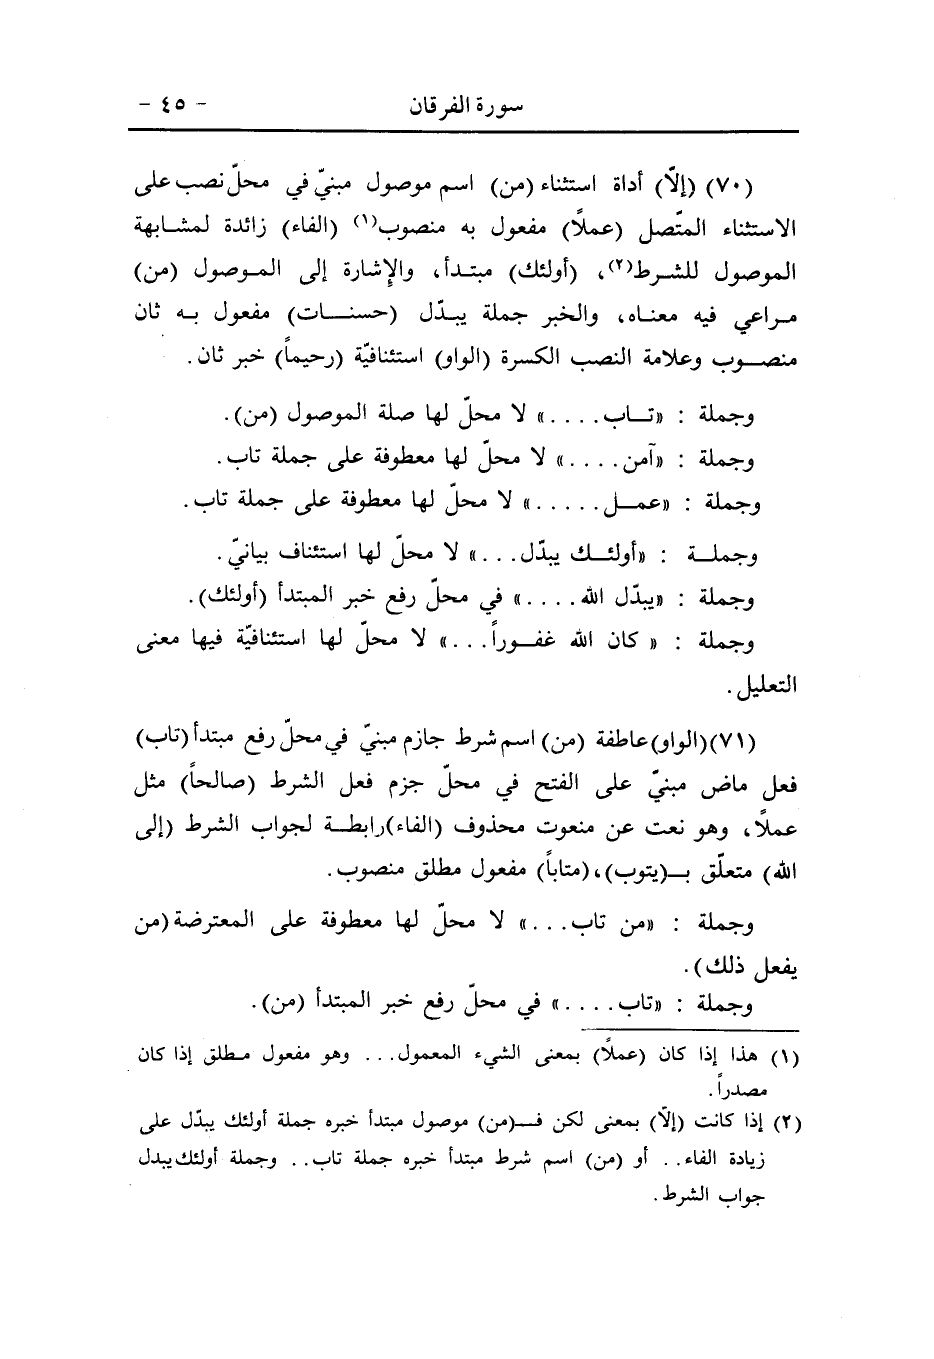 سورة الفرقان - ٤٥ -
(٧٠) (إلّا) أداة استثناء (من) اسم موصول مبنيّ في محلّ نصب على
الاستثناء المتّصل (عملاً) مفعول به منصوب(١) (الفاء) زائدة لمشابهة
الموصول للشرط(٢)، (أولئك) مبتدأ، والإشارة إلى الموصول (من)
مراعي فيه معناه، والخبر جملة يبدّل (حسنات) مفعول به ثان
منصوب وعلامة النصب الكسرة (الواو) استئنافيّة (رحيماً) خبر ثان.
وجملة : «تاب....» لا محلّ لها صلة الموصول (من).
وجملة : «آمن....» لا محلّ لها معطوفة على جملة تاب.
وجملة : «عمل.....» لا محلّ لها معطوفة على جملة تاب.
وجملة : «أولئك يبدّل...» لا محلّ لها استئناف بيانيّ.
وجملة : «يبدّل الله....» في محلّ رفع خبر المبتدأ (أولئك).
وجملة : « كان الله غفوراً...» لا محلّ لها استئنافيّة فيها معنى
التعليل.
(٧١)(الواو)عاطفة (من) اسم شرط جازم مبنيّ في محلّ رفع مبتدأ (تاب)
فعل ماض مبنيّ على الفتح في محلّ جزم فعل الشرط (صالحاً) مثل
عملاً، وهو نعت عن منعوت محذوف (الفاء)رابطة لجواب الشرط (إلى
الله) متعلّق بـ(يتوب)،(متاباً) مفعول مطلق منصوب.
وجملة : «من تاب...» لا محلّ لها معطوفة على المعترضة (من
يفعل ذلك).
وجملة : «تاب....» في محلّ رفع خبر المبتدأ (من).
(١) هذا إذا كان (عملاً) بمعنى الشيء المعمول... وهو مفعول مطلق إذا كان
مصدراً.
(٢) إذا كانت (إلّا) بمعنى لكن فـ(من) موصول مبتدأ خبره جملة أولئك يبدّل على
زيادة الفاء.. أو (من) اسم شرط مبتدأ خبره جملة تاب.. وجملة أولئك يبدل
جواب الشرط.